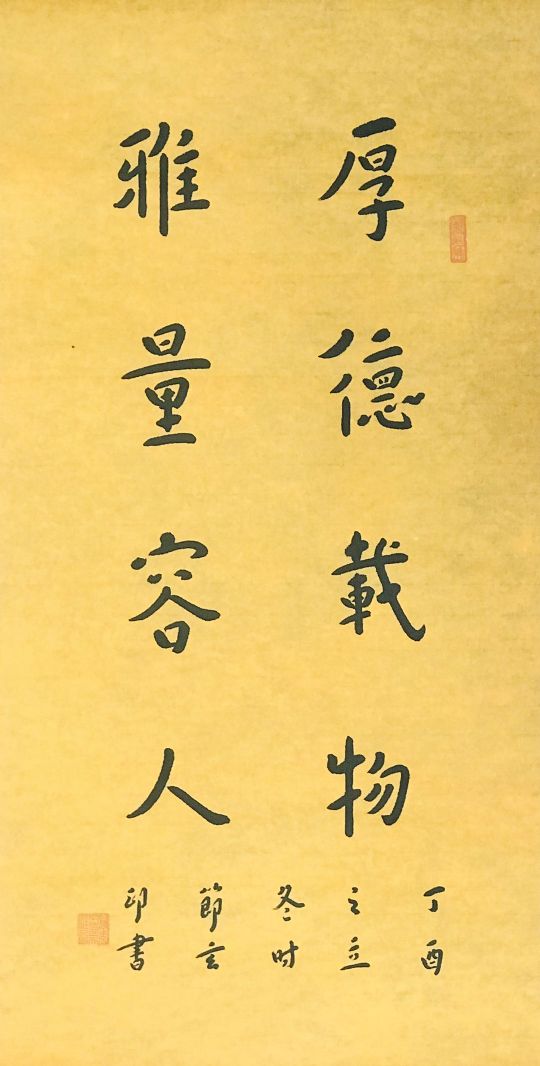 厚德載物
雅量容人
丁酉
之立
冬时
節言
印書